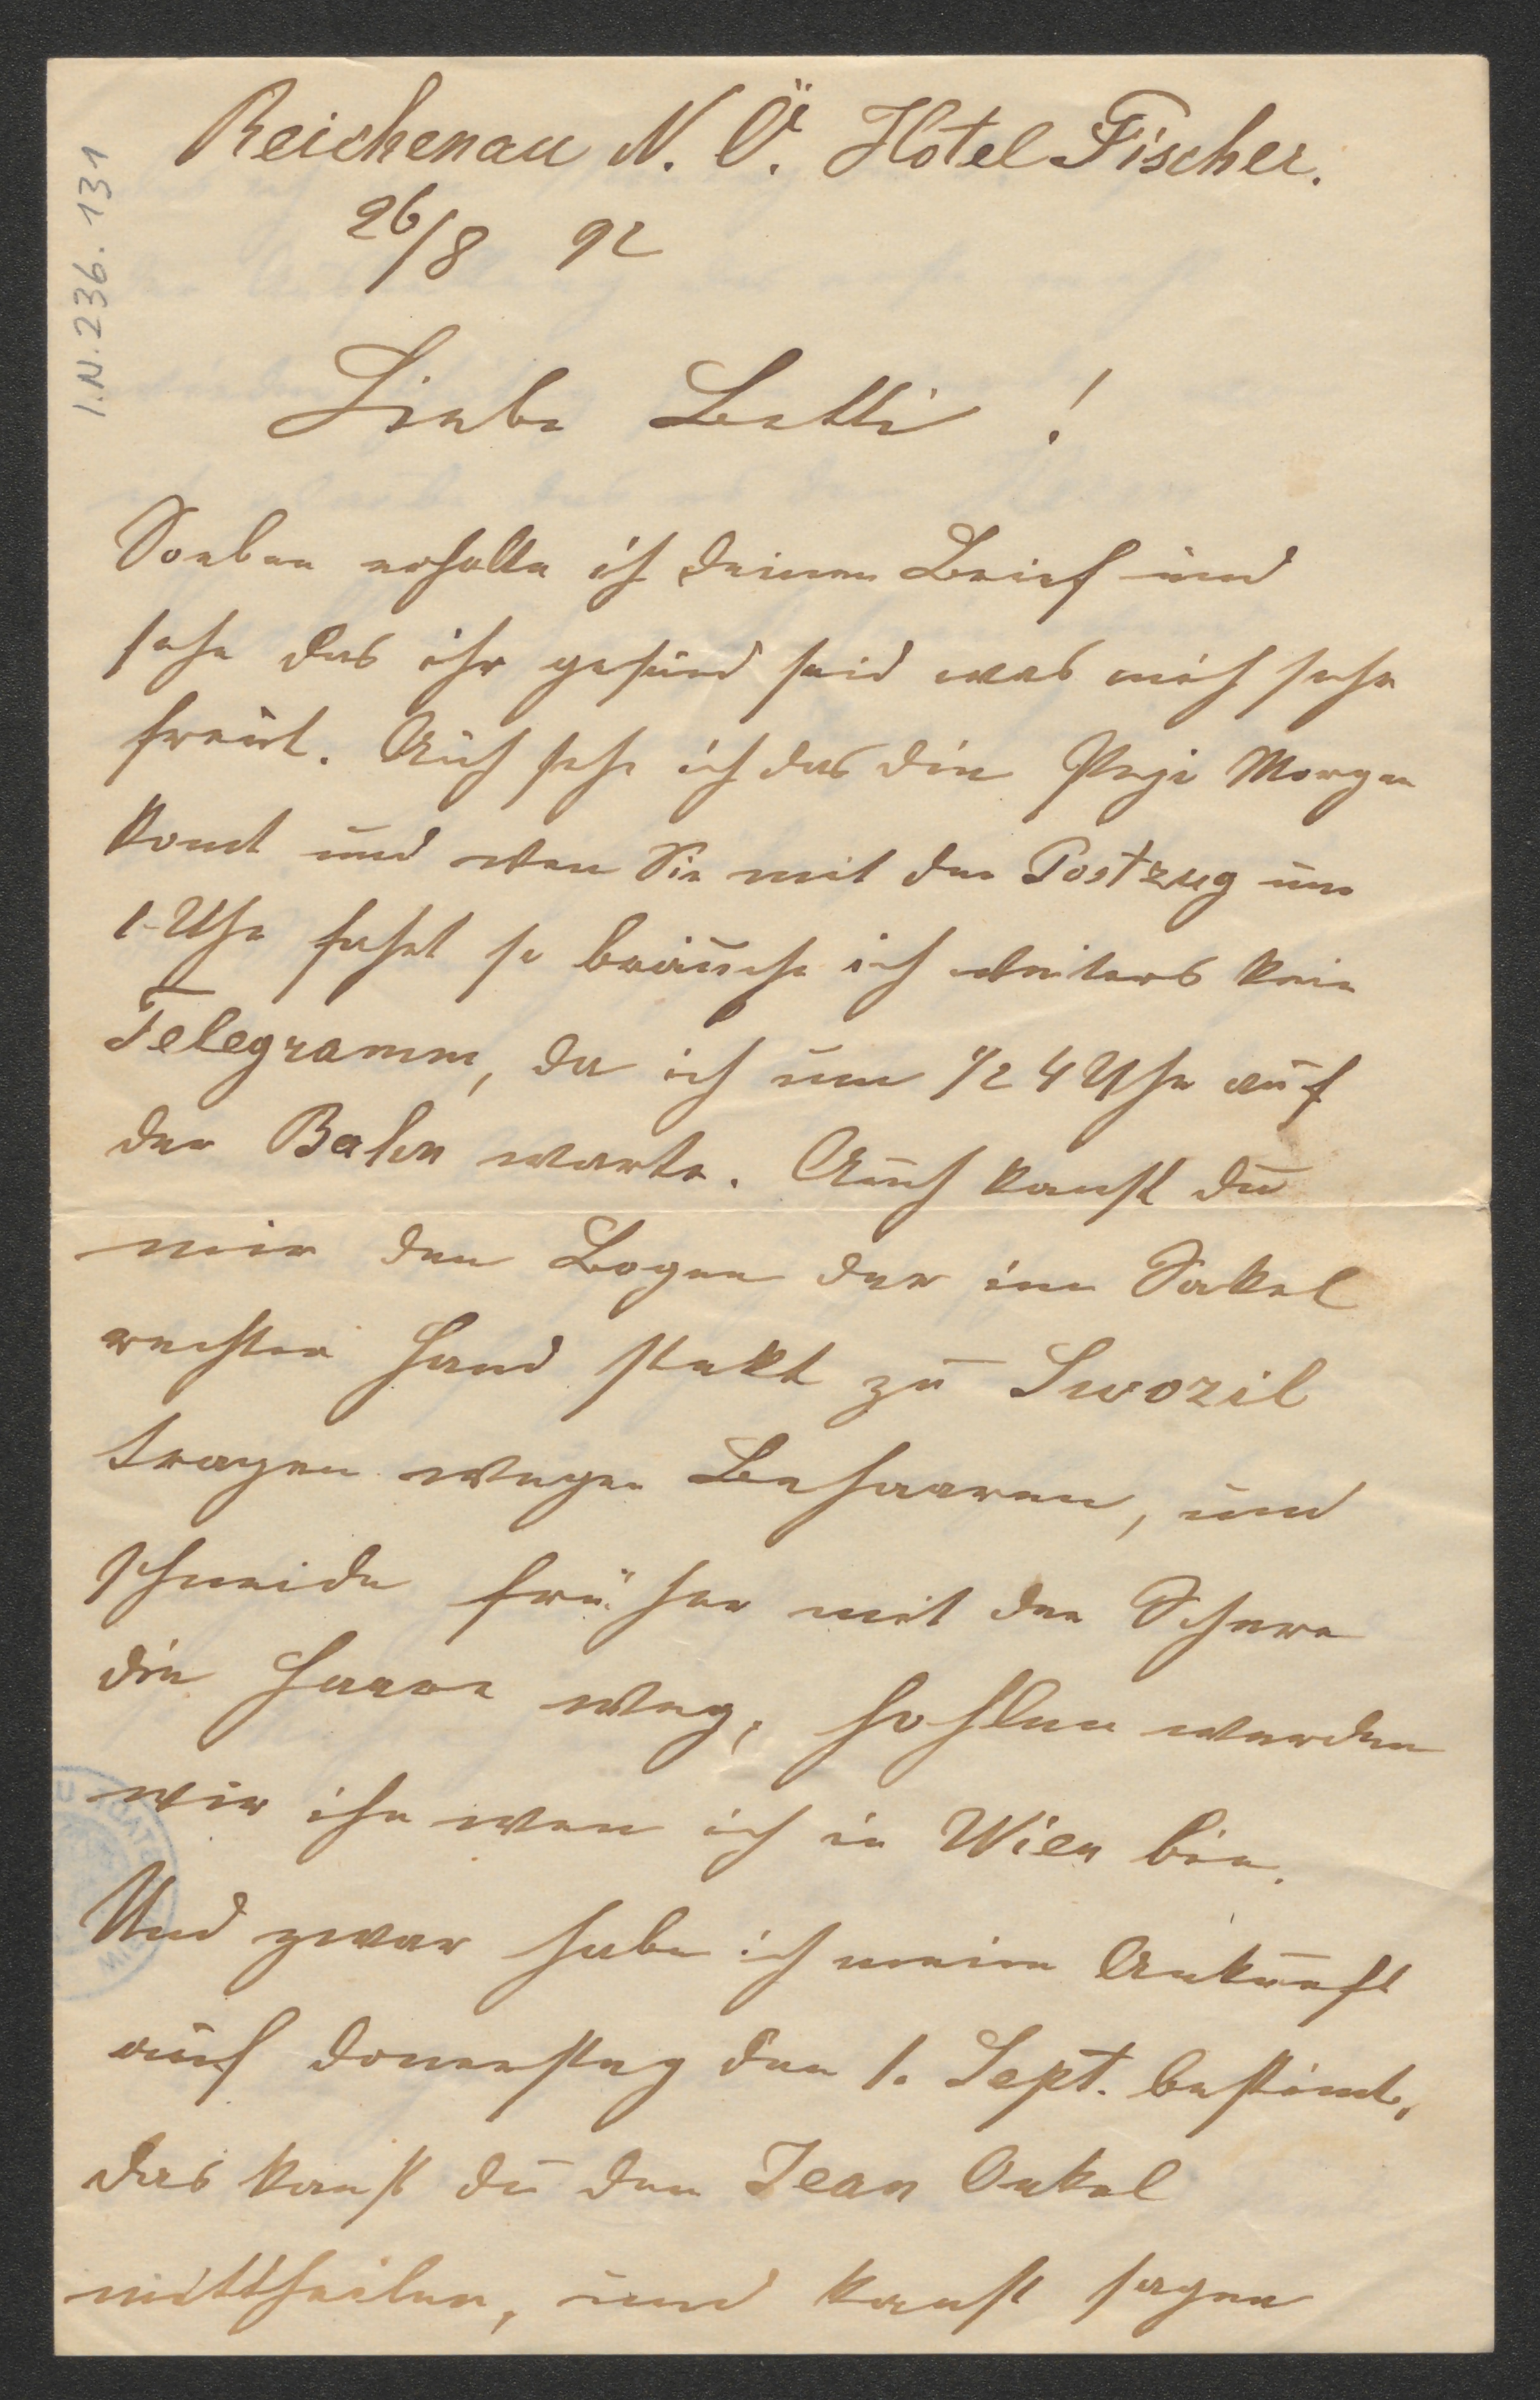 I.N. 236.131
Reichenau N. Ö. Hotel Fischer.
26/8 92
Liebe Betti !
Soeben erhalte ich deinen Brief und
sehe das ihr gesund seid was mich sehr
freut. Auch sehe ich das die Pepi Morgen
komt und wen Sie mit den Postzug um
1 Uhr fahrt so brauche ich weiters kein
Telegramm, da ich um 1/2 4 Uhr auf
der Bahn warte. Auch kanst du
mir den Bogen der im Sakel
rechter Hand stekt zu Swozil
tragen wegen Behaaren, und
schneide früher mit der Schere
die Haare weg, hohlen werden
wir ihn wen ich in Wien bin.
Und zwar habe ich meine Ankunft
auf Donerstag den 1. Sept. bestimt,
das kanst du den Jean Onkel
mittheilen, und kanst sagen